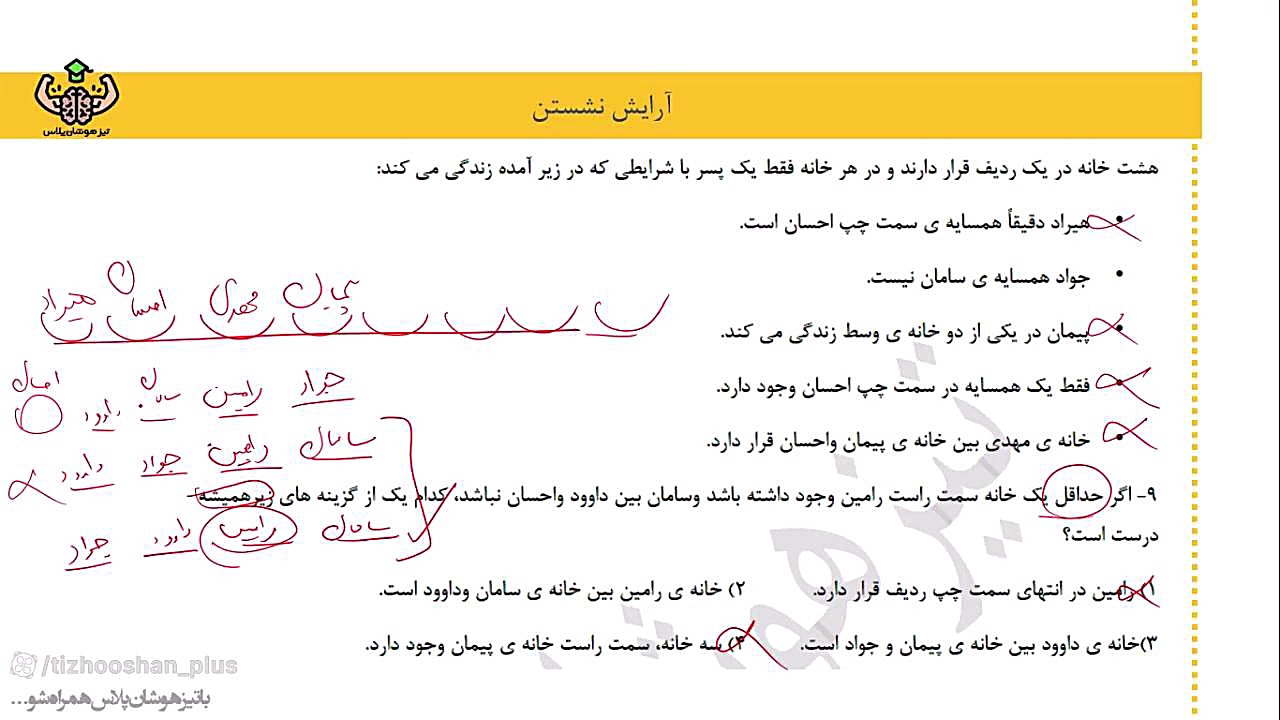 آرایش نشستن
تیزهوشان پلاس
هشت خانه در یک ردیف قرار دارند و در هر خانه فقط یک پسر با شرایطی که در زیر آمده زندگی می کند:
هیراد دقیقاً همسایه ی سمت چپ احسان است.
• جواد همسایه ی سامان نیست.
• پیمان در یکی از دو خانه ی وسط زندگی می کند.
• فقط یک همسایه در سمت چپ احسان وجود دارد.
• خانه ی مهدی بین خانه ی پیمان واحسان قرار دارد.
هیراد احسان مهدی پیمان
رامین
سامان رامین جواد داوود
سامان رامین داوود جواد
۹- اگر حداقل یک خانه سمت راست رامین وجود داشته باشد وسامان بین داوود واحسان نباشد، کدام یک از گزینه های زیرهمیشه
درست است؟
۱) رامین در انتهای سمت چپ ردیف قرار دارد.
۲) خانه ی رامین بین خانه ی سامان وداوود است.
۳)خانه ی داوود بین خانه ی پیمان و جواد است.
۴) سه خانه، سمت راست خانه ی پیمان وجود دارد.
تیزهوشان
/tizhooshan_plus
با تیزهوشان پلاس همراه شو...